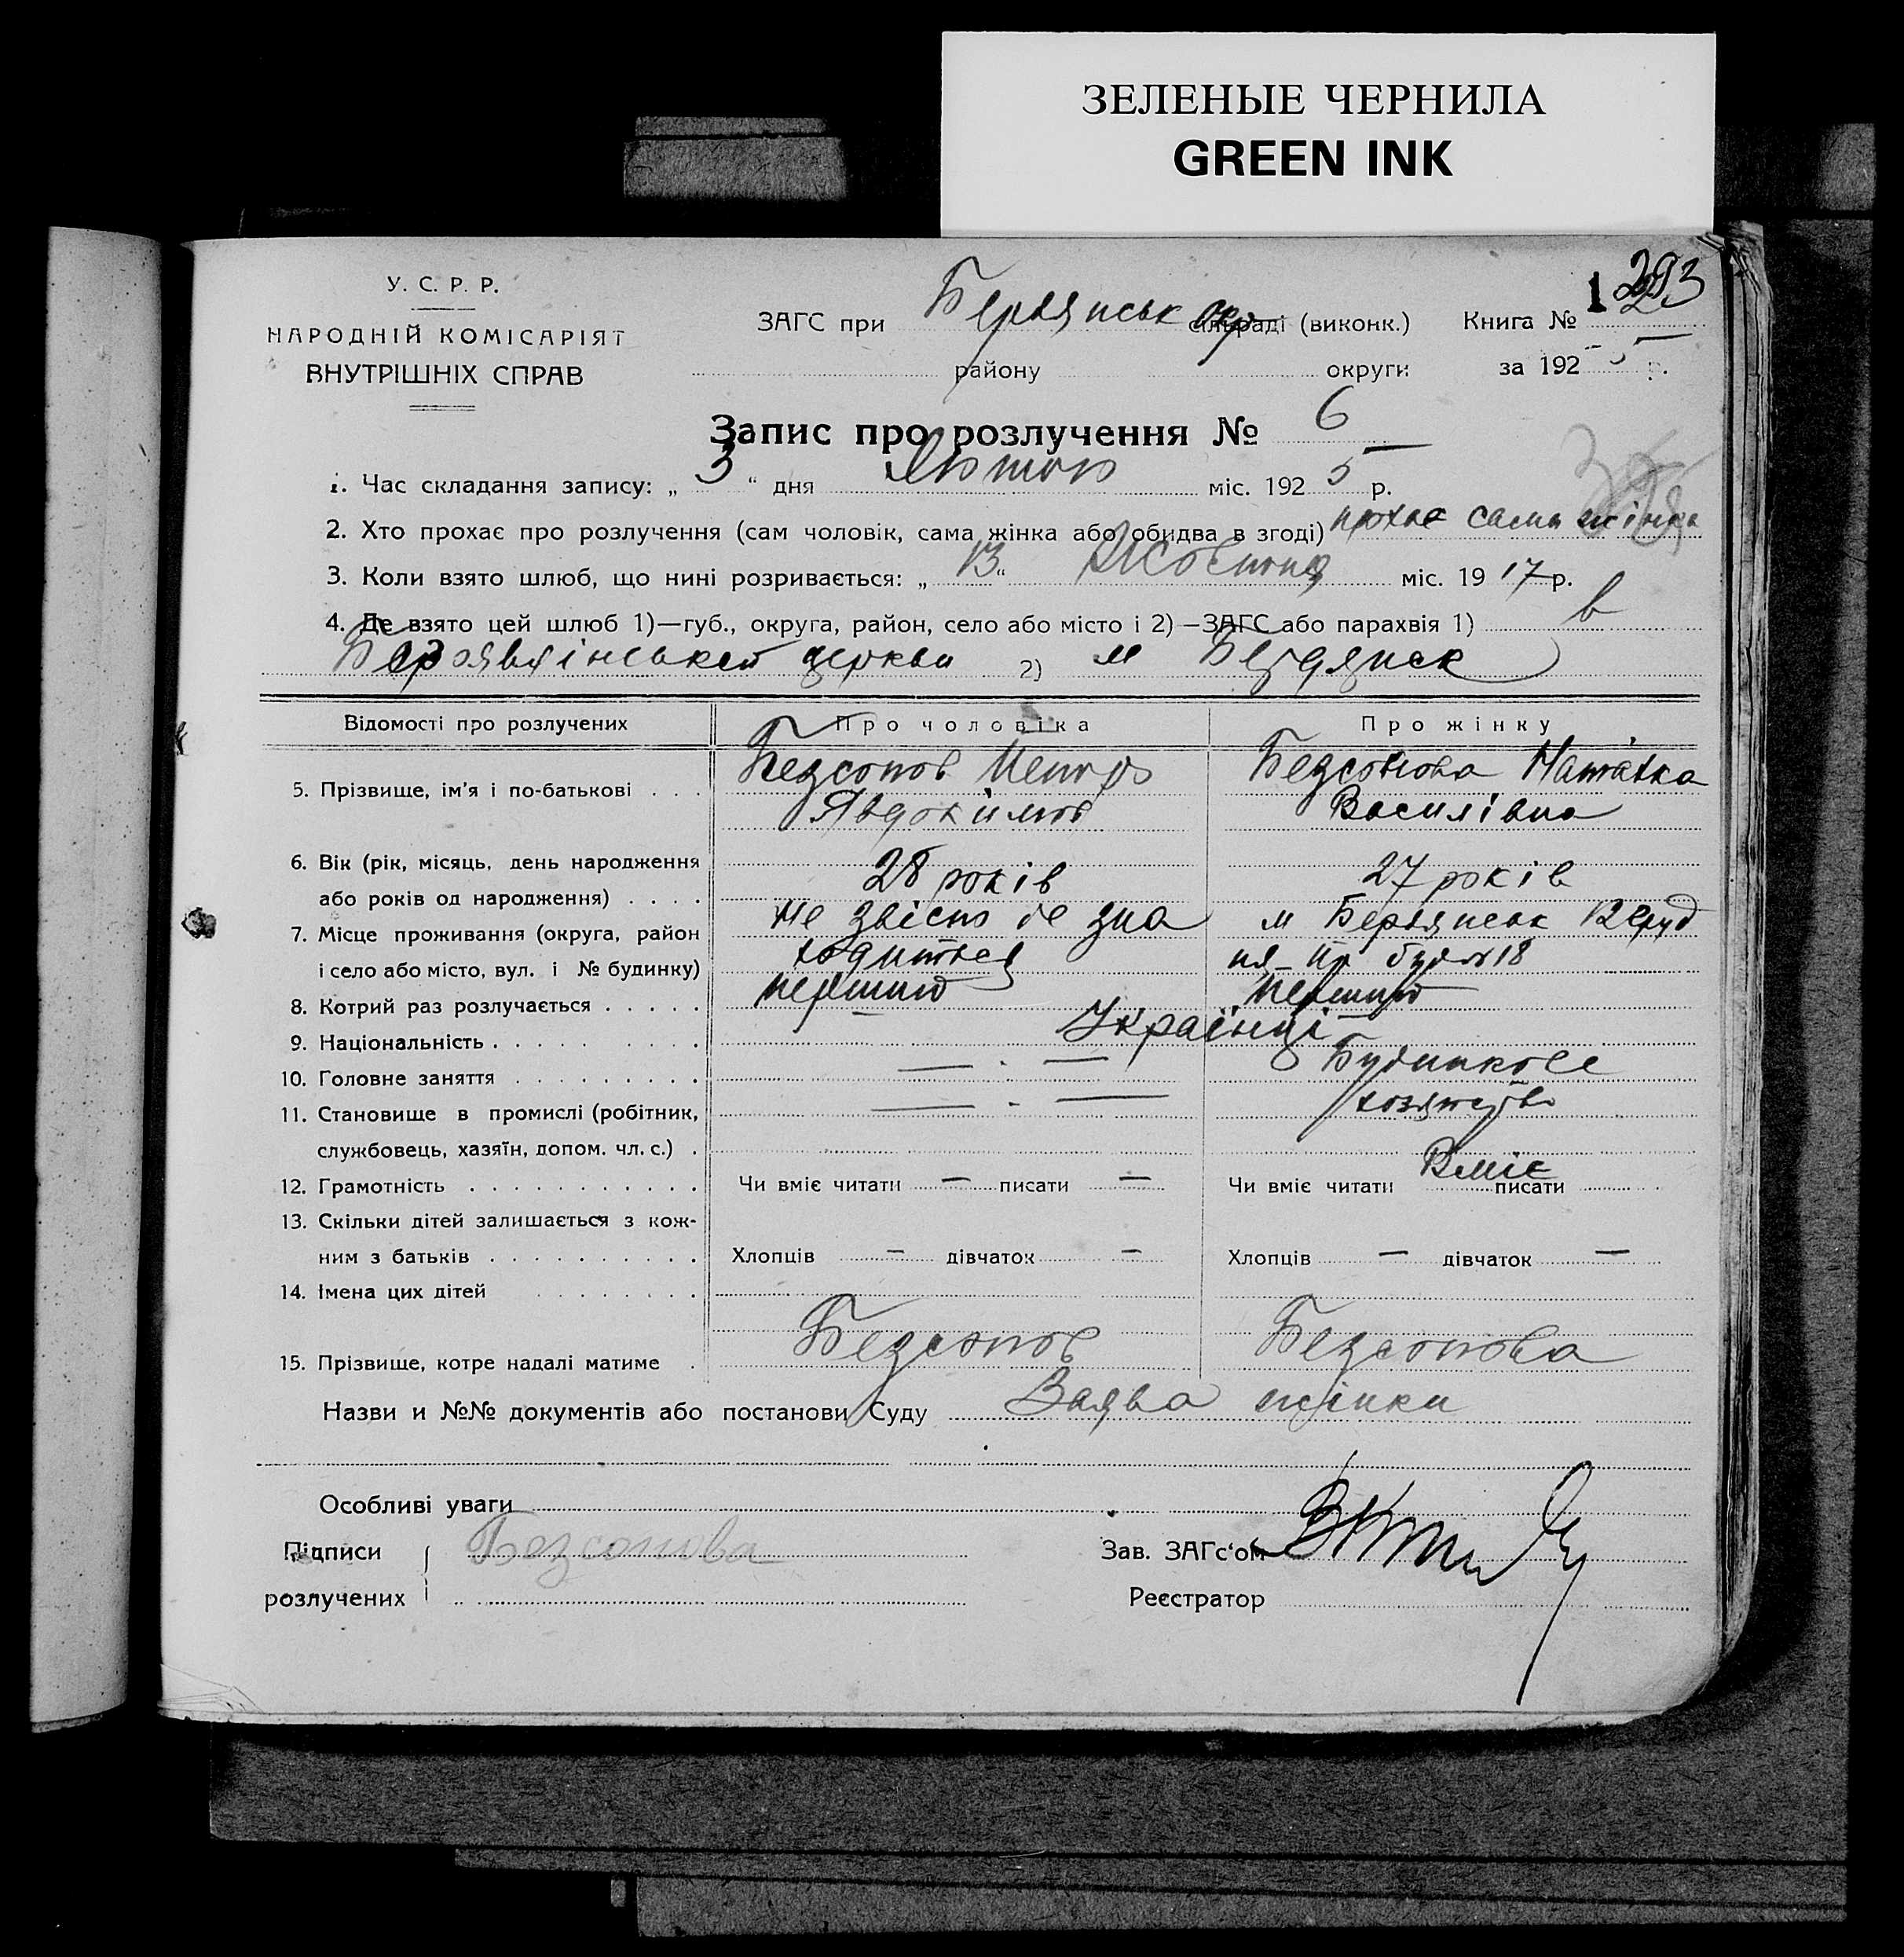 ЗЕЛЕНЫЕ ЧЕРНИЛА
GREEN INK
У. С. Р. Р.
НАРОДНІЙ КОМІСАРІЯТ
ВНУТРІШНІХ СПРАВ
ЗАГС при Бердянськ окр сільраді (виконк.) Книга № 1
293
району округи за 1925 р.
Запис про розлучення № 6
1. Час складання запису: „ 3 “ дня Лютого міс. 1925 р.
2. Хто прохає про розлучення (сам чоловік, сама жінка або обидва в згоді) прохає сама жінка
3. Коли взято шлюб, що нині розривається: „ 13 “ Жовтня міс. 1917 р.
4. Де взято цей шлюб 1)—губ., округа, район, село або місто і 2) —ЗАГС або парахвія 1) в
церкви 2) м Бердянск
Відомості про розлучених Про чоловіка Про жінку
5. Прізвище, ім'я і по-батькові . . . Безсонов Петро Безсонова Наталка
Явдокимов Василівна
6. Вік (рік, місяць, день народження
або років од народження) . . . . 28 років 27 років
7. Місце проживання (округа, район не звісно де зна м Бердянськ
і село або місто, вул. і № будинку) ходиться пр буд № 18
8. Котрий раз розлучається . . . . . перший перший
9. Національність . . . . . . . Українці
10. Головне заняття . . . . . . . . . — . — Будинкове
11. Становище в промислі (робітник, — . — хозяйство
службовець, хазяїн, допом. чл. с.) .
12. Грамотність . . . . . . . . . . . Чи вміє читати — писати — Чи вміє читати Вміє писати
13. Скільки дітей залишається з кож-
ним з батьків . . . . . . . . . . Хлопців — дівчаток — Хлопців — дівчаток —
14. Імена цих дітей . . . . . . . .
15. Прізвище, котре надалі матиме . Безсонов Безсонова
Назви и №№ документів або постанови Суду Заява жінки
Особливі уваги
Підписи Безсонова Зав. ЗАГс‘ом
розлучених Реєстратор